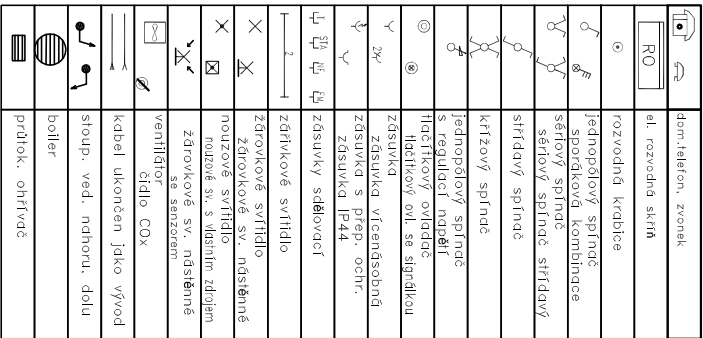 dom.telefón, zvonek
RO
el. rozvodná skříň
rozvodná krabice
jednopólový spínač
sporáková kombinace
sériový spínač
sériový spínač střídavý
střídavý spínač
křížový spínač
jednopólový spínač
s regulací napětí
tlačítkový ovladač
tlačítkový ovl. se signálkou
2x
zásuvka
zásuvka vícenásobná
zásuvka s přep. ochr.
zásuvka IP44
T STA NF FM
zásuvky sdělovací
2
zářivkové svítidlo
žárovkové svítidlo
žárovkové sv. nástěnné
nouzové svítidlo
nouzové sv. s vlastním zdrojem
žárovkové sv. nástěnné
se senzorem
ventilátor
čidlo COx
kabel ukončen jako vývod
stoup. ved. nahoru, dolu
boiler
průtok. ohřívač